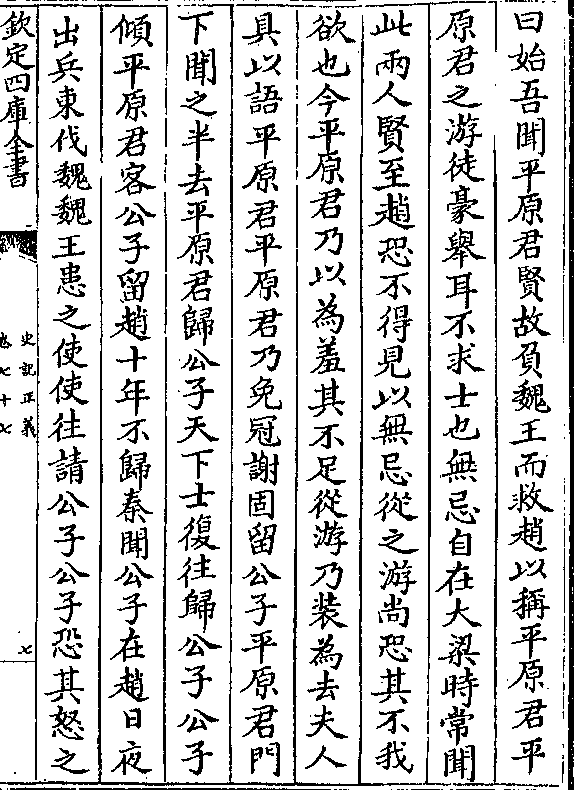 曰始吾聞平原君賢故負魏王而救趙以稱平原君平
原君之游徒豪舉耳不求士也無忌自在大梁時常聞
此兩人賢至趙恐不得見以無忌從之游尚恐其不我
欲也今平原君乃以為羞其不足從游乃装為去夫人
具以語平原君平原君乃免冠謝固留公子平原君門
下聞之半去平原君歸公子天下士復往歸公子公子
傾平原君客公子留趙十年不歸秦聞公子在趙日夜
出兵東伐魏魏王患之使使往請公子公子恐其怒之
欽定四庫全書
史記正義
卷七十七
七